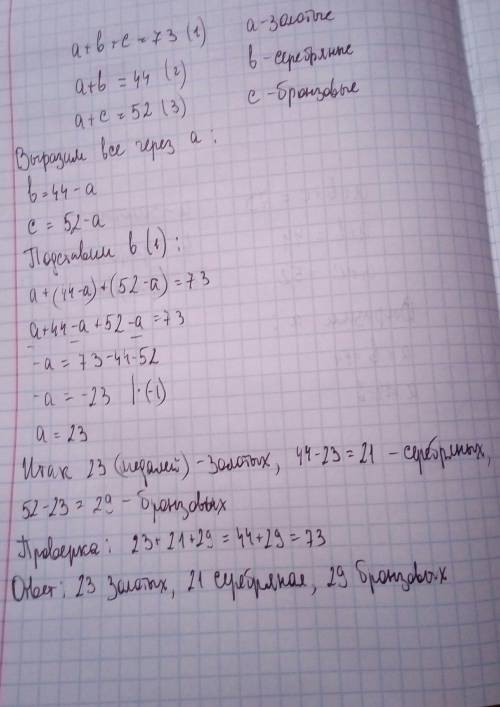 a+b+c=73 (1) a-золотые
a+b =44 (2) b-серебряные
a+c=52 (3) c-бронзовые
Выразим все через a:
b=44-a
c=52-a
Подставим в (1):
a+(44-a)+(52-a)=73
a+44-a+52-a=73
-a=73-44-52
-a=-23 |·(-1)
a=23
Итак 23 (медалей)-золотых, 44-23=21 - серебряных,
52-23=29 - бронзовых
Проверка: 23+21+29=44+29=73
Ответ: 23 золотых, 21 серебряная, 29 бронзовых